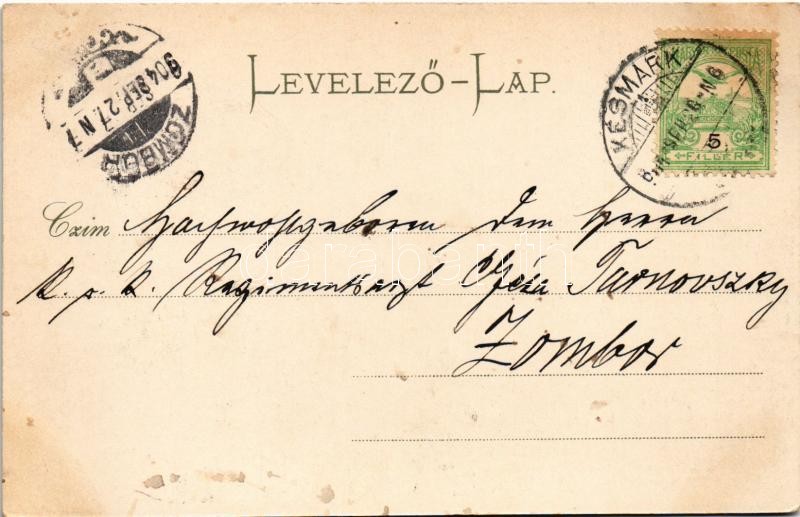 LEVELEZŐ-LAP.
904 SEP. 27. N 7
ZOMBOR
KÉSMÁRK
5
FILLÉR
Czim Hochwohlgeboren Dem Herrn
k. u. k. Regimentsarzt Géza Tarnovszky
Zombor
darabanth